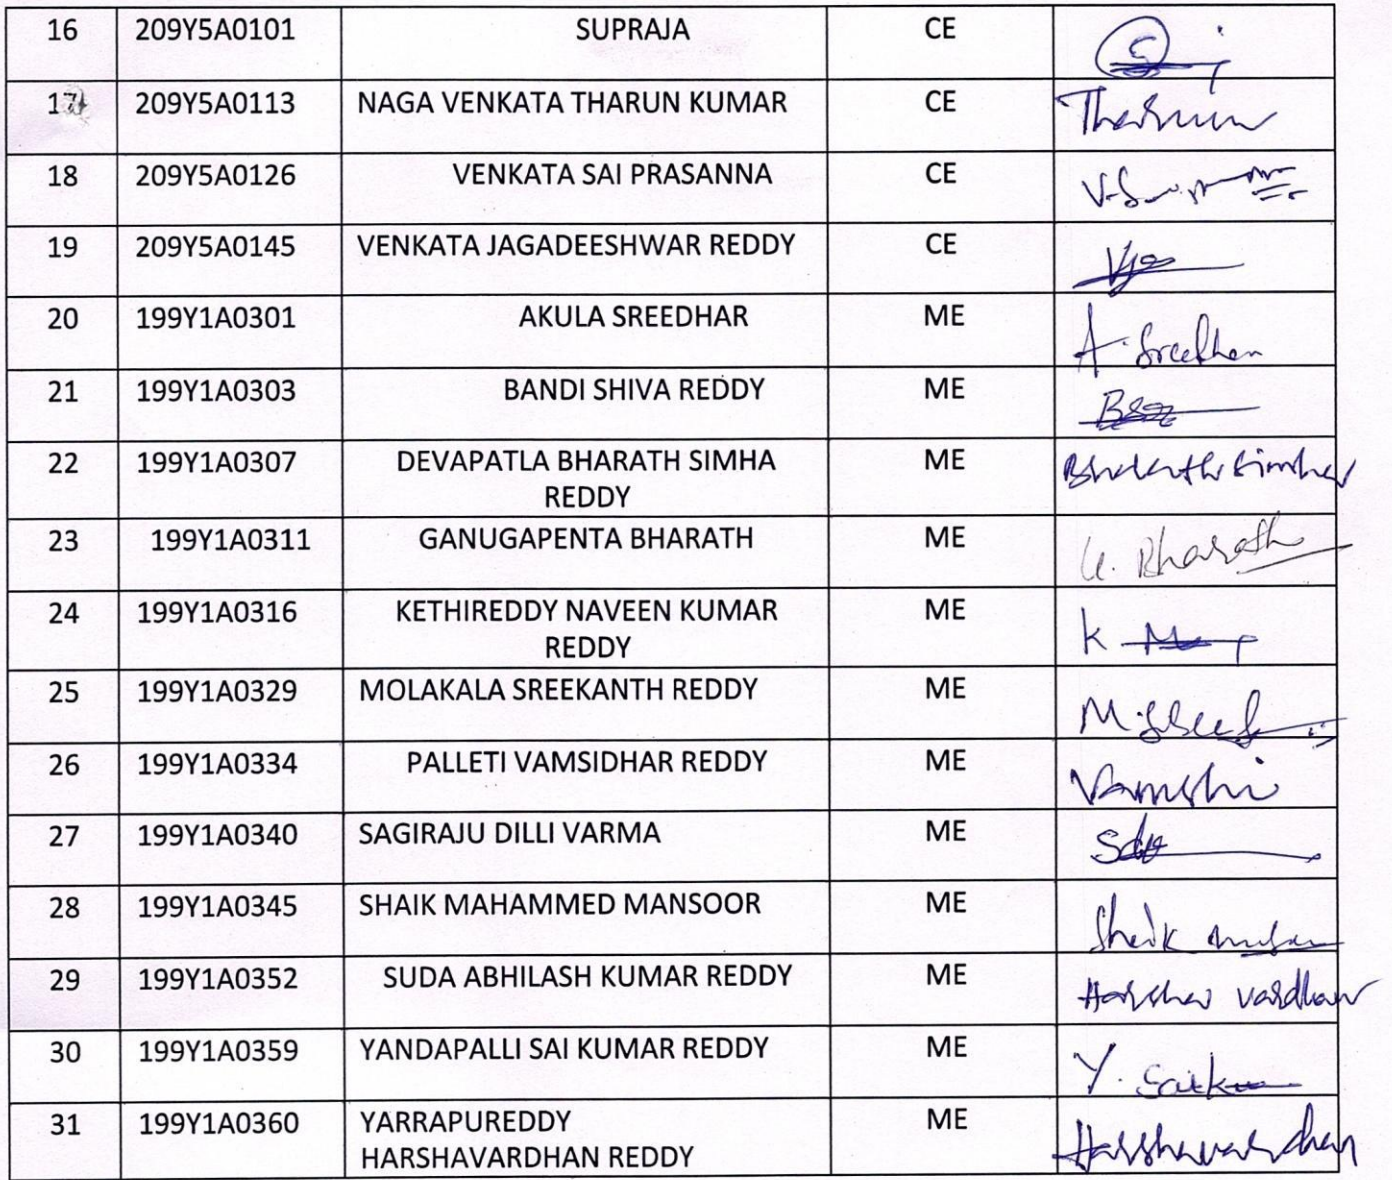 16 209Y5A0101 SUPRAJA CE
17 209Y5A0113 NAGA VENKATA THARUN KUMAR CE Tharun
18 209Y5A0126 VENKATA SAI PRASANNA CE
19 209Y5A0145 VENKATA JAGADEESHWAR REDDY CE
20 199Y1A0301 AKULA SREEDHAR ME A. Sreedhar
21 199Y1A0303 BANDI SHIVA REDDY ME
22 199Y1A0307 DEVAPATLA BHARATH SIMHA ME Bharath Simha
REDDY
23 199Y1A0311 GANUGAPENTA BHARATH ME G. Bharath
24 199Y1A0316 KETHIREDDY NAVEEN KUMAR ME K
REDDY
25 199Y1A0329 MOLAKALA SREEKANTH REDDY ME
26 199Y1A0334 PALLETI VAMSIDHAR REDDY ME Vamshi
27 199Y1A0340 SAGIRAJU DILLI VARMA ME
28 199Y1A0345 SHAIK MAHAMMED MANSOOR ME Shaik
29 199Y1A0352 SUDA ABHILASH KUMAR REDDY ME Harsha vardhan
30 199Y1A0359 YANDAPALLI SAI KUMAR REDDY ME Y.
31 199Y1A0360 YARRAPUREDDY ME Harshavardhan
HARSHAVARDHAN REDDY